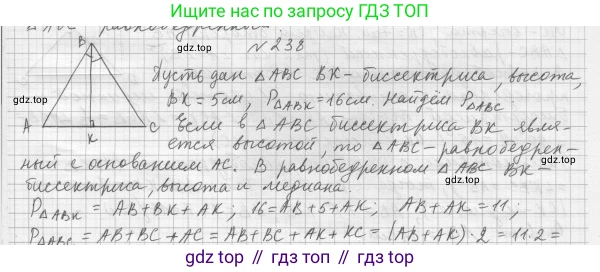 Ищите нас по запросу ГДЗ ТОП
△ABC равнобедренный.
N 238
B
A
K
C
Пусть дан △ABC BK - биссектриса, высота,
BK = 5см, P△ABK = 16см. Найдём P△ABC.
Если в △ABC биссектриса BK явля-
ется высотой, то △ABC - равнобедрен-
ный с основанием AC. В равнобедренном △ABC BK -
биссектриса, высота и медиана.
P△ABK = AB + BK + AK; 16 = AB + 5 + AK; AB + AK = 11;
P△ABC = AB + BC + AC = AB + BC + AK + KC = (AB + AK) · 2 = 11 · 2 =
gdz.top
gdz.top
gdz.top
gdz.top
gdz.top
gdz.top // гдз.топ // gdz.top // гдз.топ